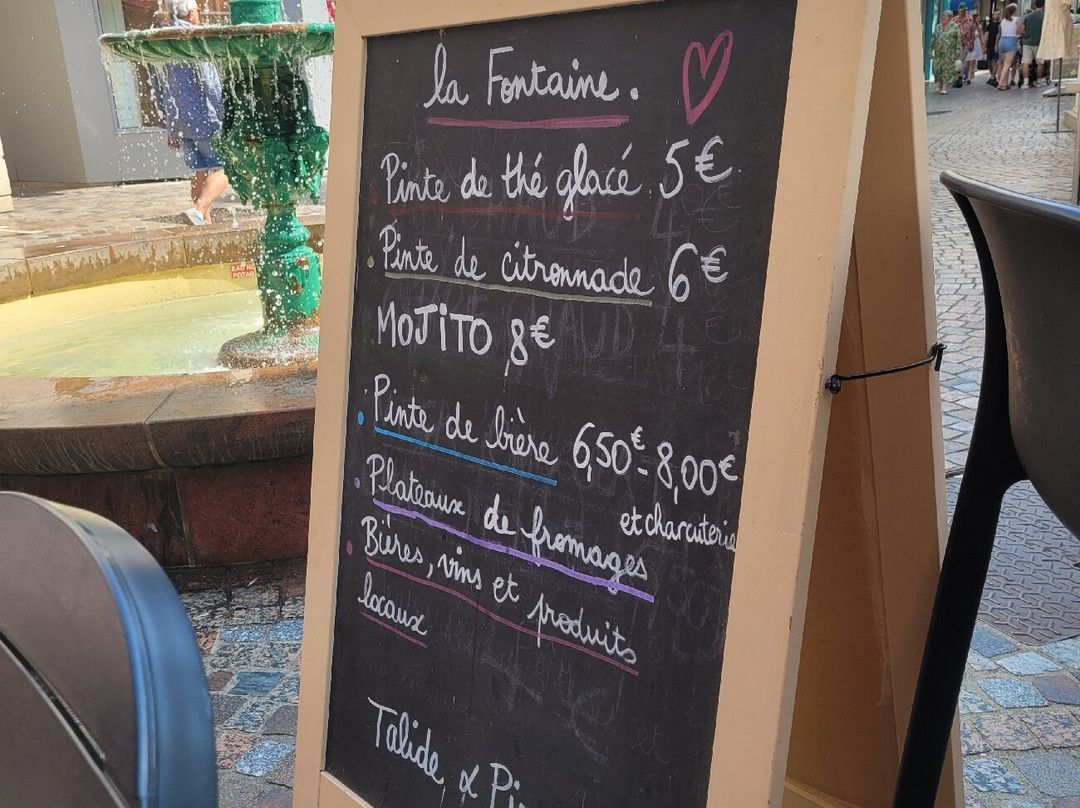 la Fontaine.
Pinte de thé glacé 5€
Pinte de citronnade 6€
MOJITO 8€
Pinte de bière 6,50€-8,00€
Plateaux de fromages
et charcuterie
Bières, vins et produits
locaux
Talide &